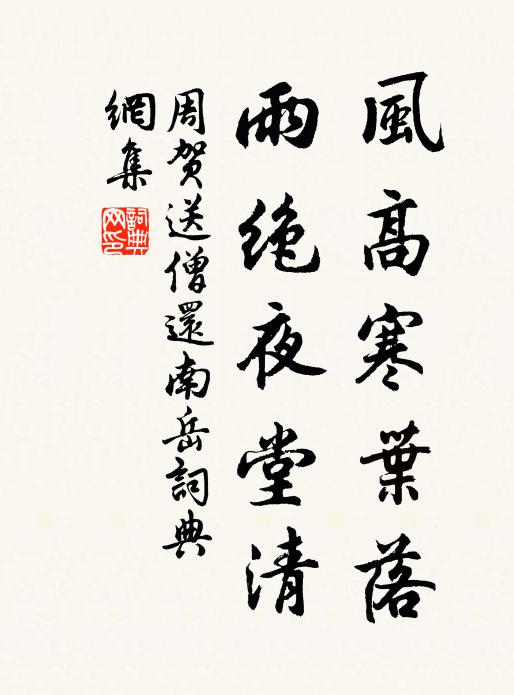 風高寒葉落
雨絶夜堂清
周贺送僧還南岳詞典
網集
詞典
网印